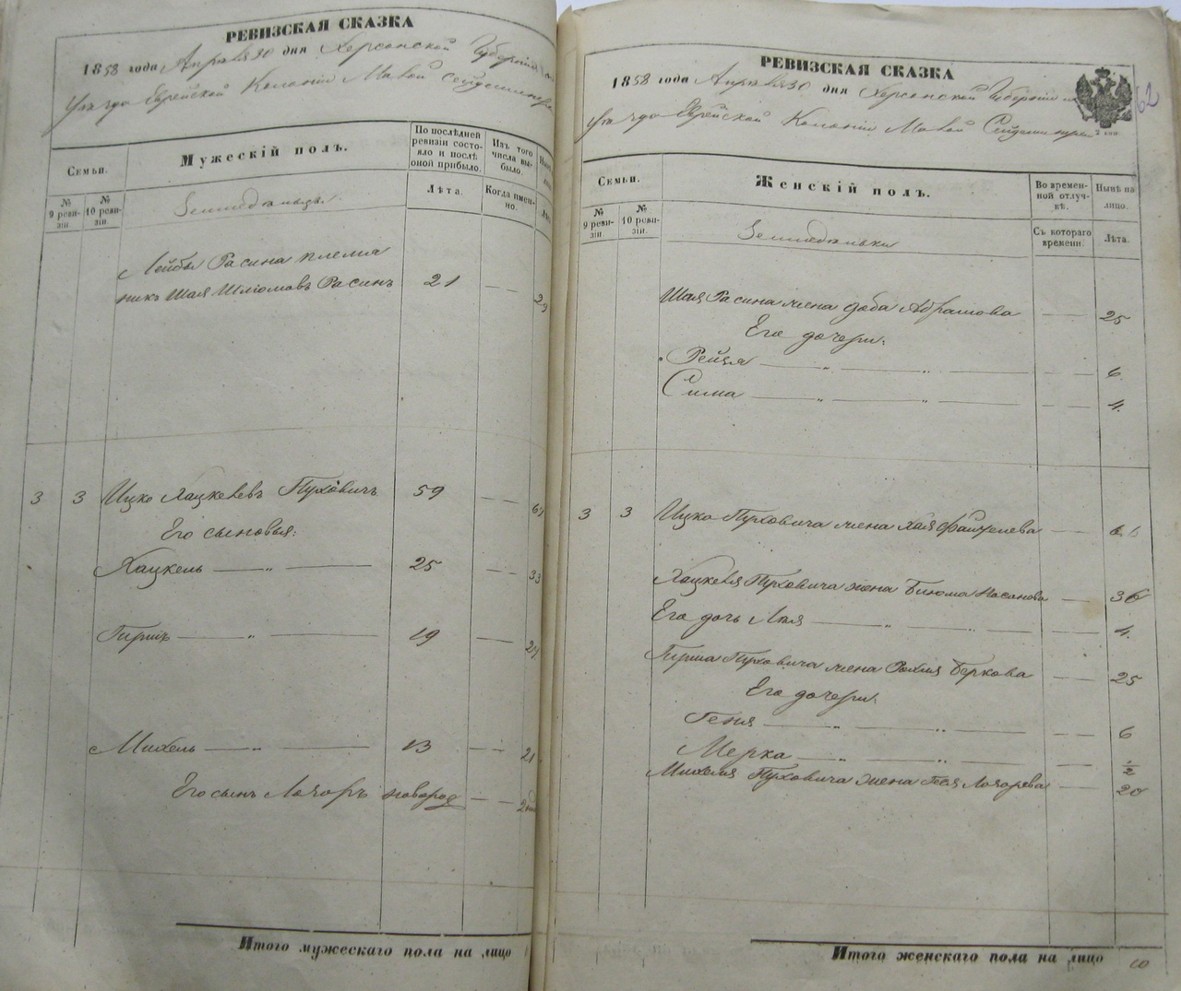 РЕВИЗСКАЯ СКАЗКА
1858 года Апреля 30 дня Херсонской Губернии
уезда Еврейской Колонии Малой Сейдеминухи
Семьи.
Мужескій полъ.
По последней ревизіи состояло и послѣ оной прибыло.
Изъ того числа выбыло.
№ 9 ревизіи
№ 10 ревизіи.
Земледельцы.
Лѣта.
Когда именно.
Лейбы Расина племян
никъ Шая Шлюмовъ Расинъ 21 — — 29
3 3 Ицко Хацкелевъ Пуховичъ 59 — — 67
Его сыновья:
Хацкель — „ — 25 — — 33
Гиршъ — „ — 19 — — 27
Михель — „ — 13 — — 21
Его сынъ Лазоръ новород — —
Итого мужескаго пола на лицо
РЕВИЗСКАЯ СКАЗКА
62
1858 года Апреля 30 дня Херсонской Губернии
уезда Еврейской Колонии Малой Сейдеминухи
Семьи.
Женскій полъ.
Во временной отлучкѣ.
Нынѣ на лицо.
№ 9 ревизіи
№ 10 ревизіи.
Земледельки
Съ котораго времени.
Лѣта.
Шая Расина жена Доба Абрамова — — 25
Его дочери:
Рейзя — „ — „ — — — 6
Сима — „ — „ — — — 4
3 3 Ицко Пуховича жена Хая Файвелева — —
Хацкеля Пуховича жена Бюома Носанова — — 36
Его дочь Лея — „ — „ — — — 4
Гирша Пуховича жена Рохля Беркова — — 25
Его дочери:
Геня — „ — „ — — — 6
Мерка — „ — „ — — — ½
Михеля Пуховича жена Геся Лазорева — — 20
Итого женскаго пола на лицо 10